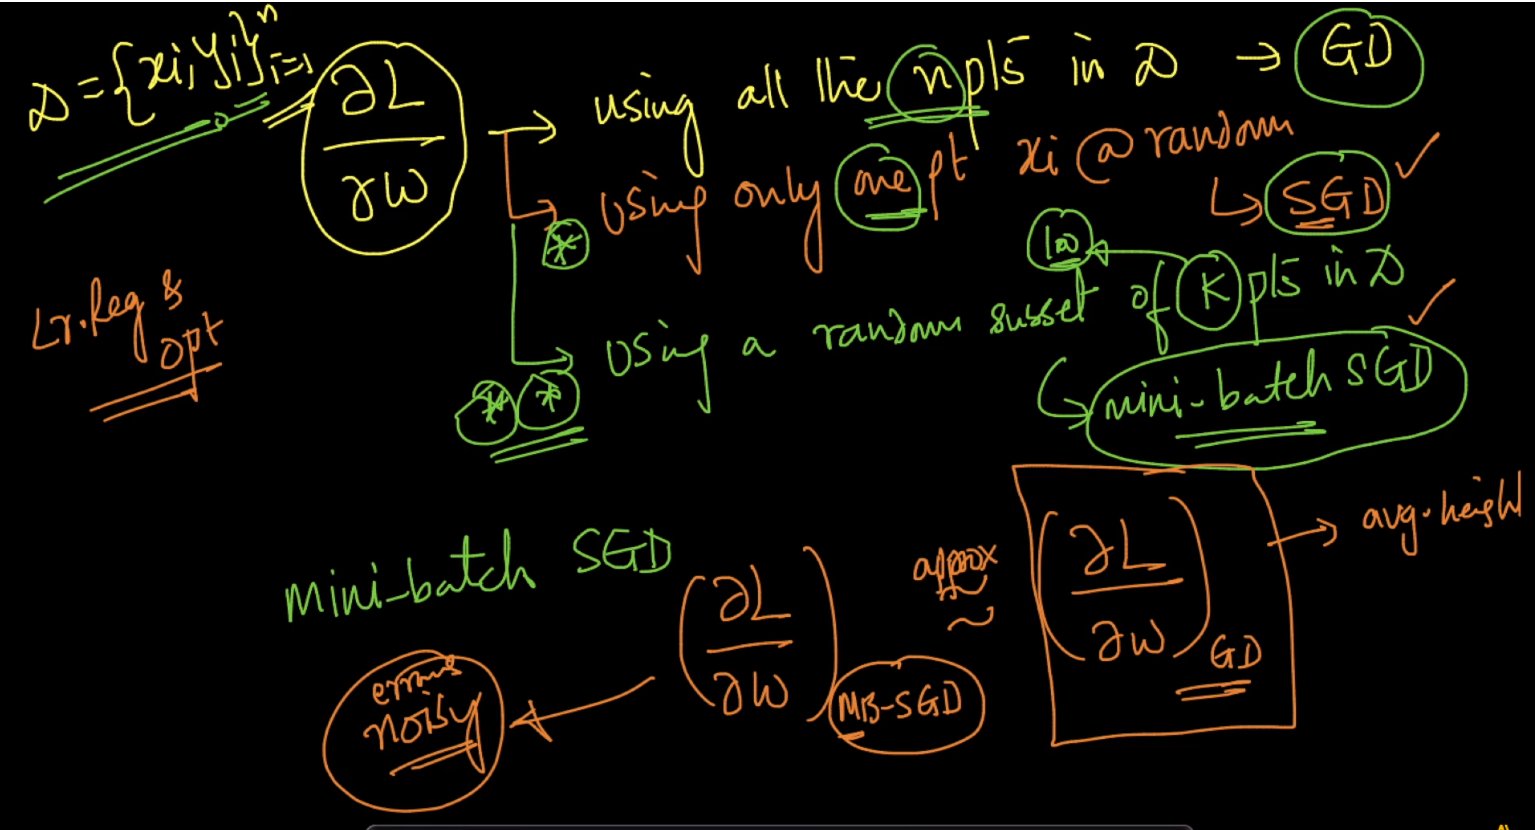 D = {xi, yi}ⁿi=1
∂L/∂w → using all the n pts in D → GD
using only one pt xi @ random
↳ SGD ✓
* 100
Lr. Reg & opt
using a random subset of K pts in D ✓
** mini-batch SGD
mini-batch SGD
(∂L/∂w)MB-SGD approx ~ (∂L/∂w)GD → avg. height
noisy